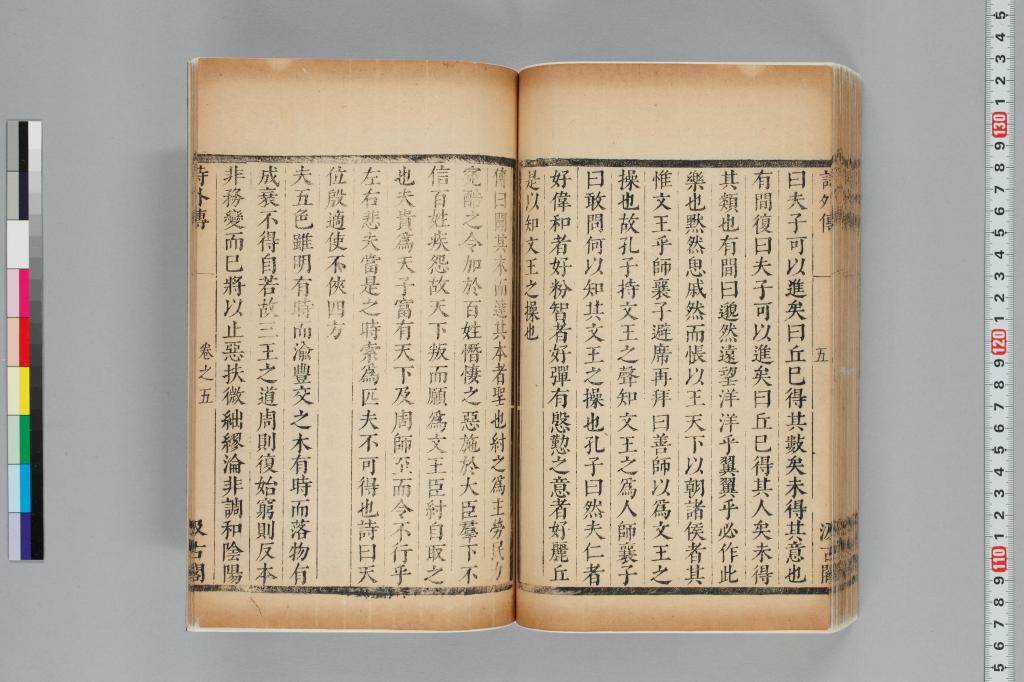 詩外傳
五
汲古閣
曰夫子可以進矣曰丘已得其數矣未得其意也
有間復曰夫子可以進矣曰丘已得其人矣未得
其類也有間曰邈然遠望洋洋乎翼翼乎必作此
樂也黙然思戚然而悵以王天下以朝諸侯者其
惟文王乎師襄子避席再拜曰善師以為文王之
操也故孔子持文王之聲知文王之為人師襄子
曰敢問何以知其文王之操也孔子曰然夫仁者
好偉和者好粉智者好彈有慇懃之意者好麗丘
是以知文王之操也
傳曰聞其末而達其本者聖也紂之為主勞民力
冤酷之令加於百姓憯悽之惡施於大臣羣下不
信百姓疾怨故天下叛而願為文王臣紂自取之
也夫貴為天子富有天下及周師至而令不行乎
左右悲夫當是之時索為匹夫不可得也詩曰天
位殷適使不俠四方
夫五色雖明有時而渝豐交之木有時而落物有
成衰不得自若故三王之道周則復始窮則反本
非務變而已將以止惡扶微絀繆淪非調和陰陽
詩外傳
卷之五
汲古閣
5 4 3 2 1 130 9 8 7 6 5 4 3 2 1 120 9 8 7 6 5 4 3 2 1 110 9 8 7 6 5